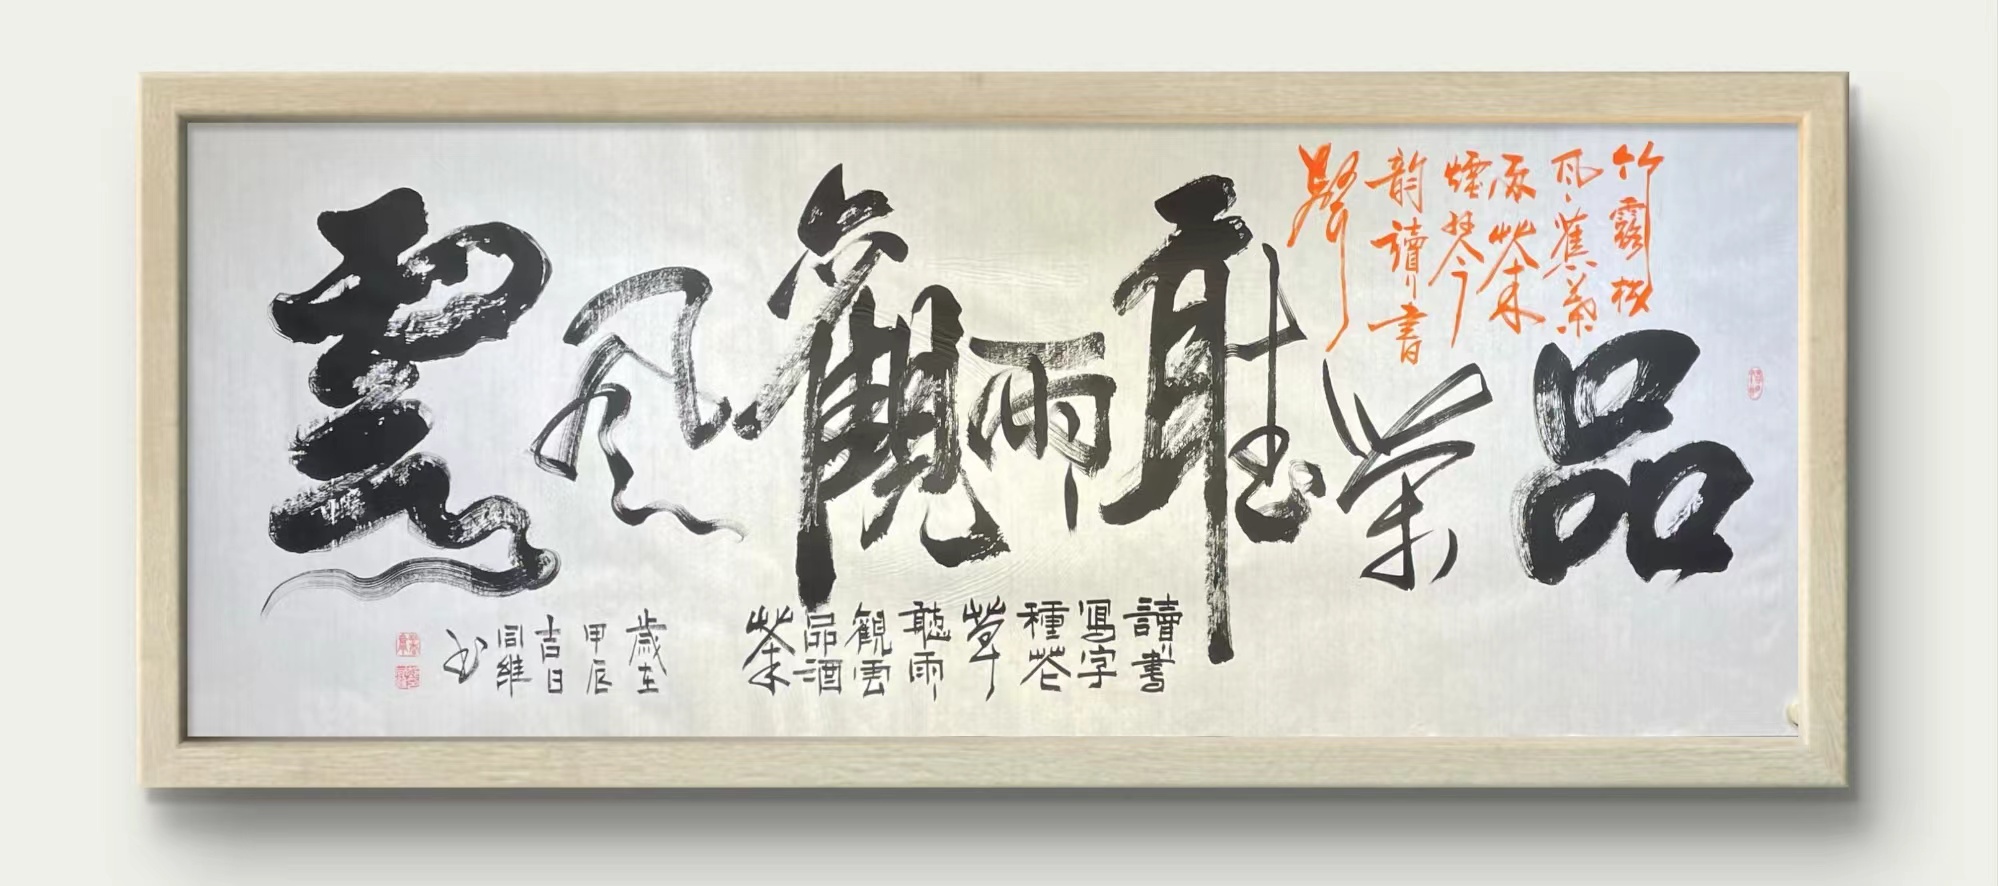 品茶聽雨觀風雲
竹露松
風蕉
茶
煙琴
韵讀書
聲
讀書
寫字
種花
草
聽雨
觀雲
品酒
茶
歲在
甲辰
吉日
同維
书